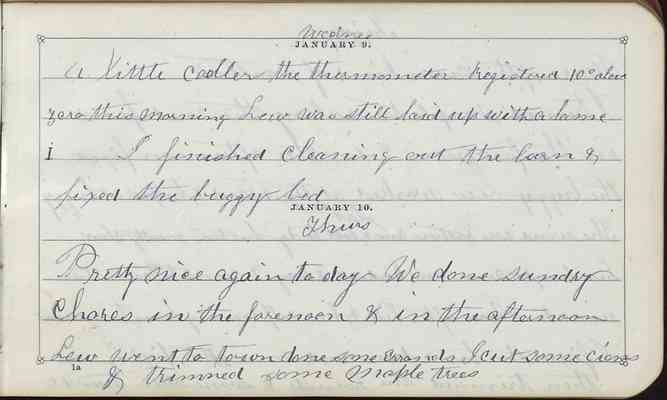 Wednes
JANUARY 9.
A little cooller the thermometer registered 10° above
zero this morning Lew was still laid up with a lame
I finished cleaning out the barn &
fixed the buggy bed
JANUARY 10.
Thurs
Pretty nice again to day We done sundry
Chores in the forenoon & in the afternoon
Lew went to town done some Errands I cut some cions
1a
& trimmed some Maple trees